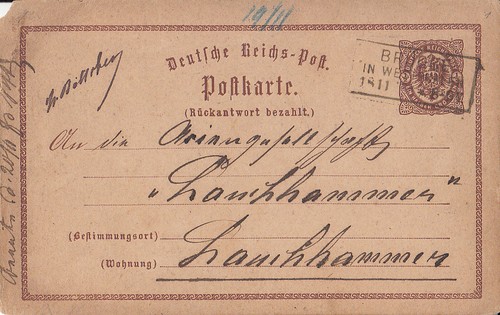 19/11
Deutsche Reichs-Post.
Postkarte.
(Rückantwort bezahlt.)
BR
IN WE
18 11
An die Actiengesellschaft
"Lauchhammer"
(Bestimmungsort)
(Wohnung) Lauchhammer